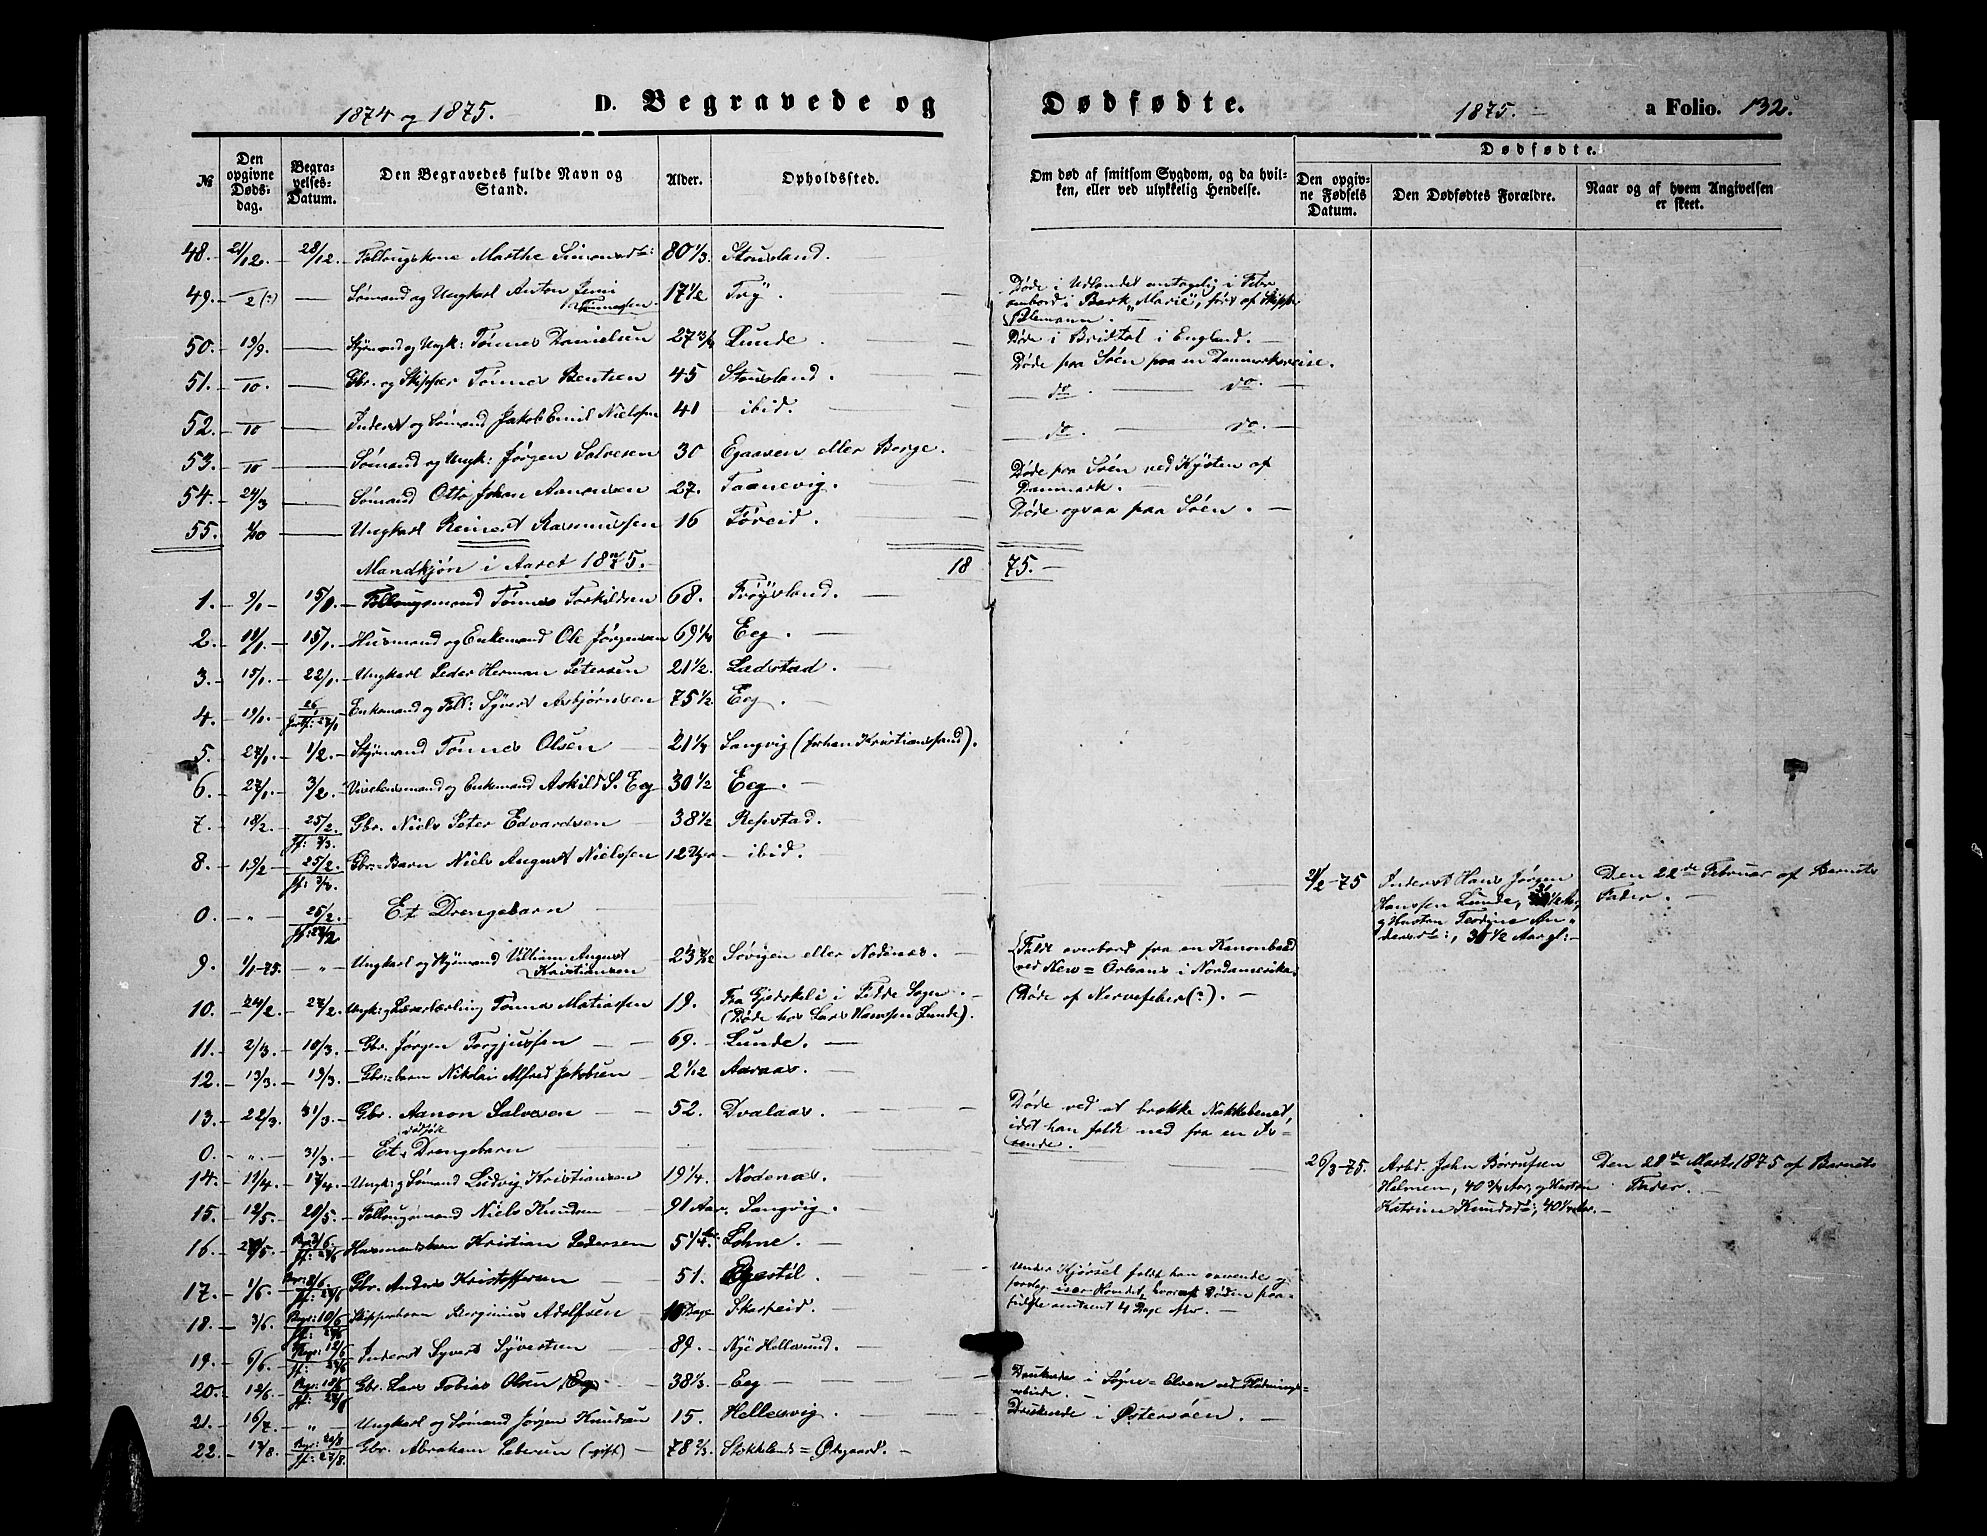 1874 og 1875.
D. Begravede og
Dødfødte.
1875.
a Folio. 132.
№
Den opgivne Døds-dag.
Begra-velses-Datum.
Den Begravedes fulde Navn og Stand.
Alder.
Opholdssted.
Om død af smitsom Sygdom, og da hvil-ken, eller ved ulykkelig Hendelse.
Dødfødte.
Den opgiv-ne Fødsels Datum.
Den Dødfødtes Forældre.
Naar og af hvem Angivelsen er skeet.
48. 21/12. 28/12. Marthe Simonsd: 80 1/3. Stousland.
49. /2 (?) — Sømand og Ungkarl Anton Tønnesen 17 1/2 Try. Døde i Udlandet antagelig i Febr. ombord i Bark "Marie", ført af Skipper
50. 19/9. — Styrmand og Ungk: Tønnes Danielsen 27 Lunde. Døde i Bristol i England.
51. /10. — Gbr. og Skipper Tønnes Bentsen 45 Stousland. Døde paa Søen paa en Danmarksreise.
52. /10 — Inderst og Sømand Jakob Emil Nielsen 41 ibid. do. do.
53. /10 — Sømand og Ungk: Jørgen Salvesen 30 Egaaven eller Borge. do. do.
54. 24/3 Sømand Otto Johan Aanonsen 27. Taanevig. Døde paa Søen ved Kysten af Danmark.
55. /10 — Ungkarl Reinert Rasmussen 16 Føreid. Døde ogsaa paa Søen.
Mandkjøn i Aaret 1875. 18 75.
1. 9/1 15/1. Tønnes Torkildsen 68. Trøysland.
2. 10/1. 15/1. Husmand og Enkemand Ole Jørgensen 69 1/4 Eeg.
3. 15/1. 22/1. Ungkarl Peder Herman Petersen 21 1/2. Ladstad.
4. 19/1. 26/1 Enkemand og Syvert Asbjørnsen 75 1/2 Eeg.
5. 27/1. 1/2. Styrmand Tønnes Olsen 21 1/4 Langvig (forhen Kristianssand).
6. 27/1. 3/2. Enkemand Askild S. Eeg 30 1/2 Eeg.
7. 18/2. 25/2. Gbr. Niels Peter Edvardsen 38 1/2 Repstad.
8. 19/2 25/2. Gbr:Barn Niels August Nielsen 12 Uger ibid.
0. „ 25/2. Et Drengebarn 21/2-75 Inderst Hans Jørgen Hanssen Lunde, og Hustru Teodine An-dersd:, 30 1/2 Aar gl: Den 22de Februar af Barnets Fader.
9. 1/1-75. „ Ungkarl og Styrmand William August Kristiansen 23 Søvigen eller Nodenes. Faldt overbord fra en Kanonbaad ved New=Orleans i Nordamerika
10. 24/2. 27/2. Tønnes Matiassen 19. Fra Gjedskeli i Fede Sogn. (Døde hos Lars Hanssen Lunde). (Døde af Nervefeber(?).
11. 2/3. 10/3. Gbr. Jørgen Torgjussen 69. Lunde.
12. 13/3. 19/3. Gbr:barn Nikolai Alfred Jakobsen 2 1/12 Aaraas.
13. 22/3. 31/3. Gbr. Aanon Salvesen 52. Dvalaas. Døde ved at brække Nakkebenet, idet han faldt ned fra en
0. „ 31/3. Et dødfødt Drengebarn 26/3-75. Arbd. John Børrufsen Holmen, 40 Aar og Hustru Katrine Knudsd:, 40 Den 28de Marts 1875 af Barnets Fader.
14. 12/4. 17/4. Ungk: og Sømand Ludvig Kristiansen 19 1/4. Nodenes.
15. 12/5. 20/5. Niels Knudsen 91 Aar. Langvig.
16. Husmandsbarn Kristian Pedersen 5 1/4. Lohne.
17. 1/6. Gbr. Anders Kristoffersen 51. Under Kjørsel faldt han
18. 3/6. Bgr: 10/6 Skipperbarn Berginius Adolfsen Dage Skarpeid.
19. 6/6. Bgr: 12/6 Inderst Syvert Syvertsen 89. Nye Hellesund.
20. 12/6. Bgr: 18/6 Gbr. Lars Tobias Olsen Eeg 38 1/3. Eeg Druknede i Søgne=Elven ved Flødnings-arbeide.
21. 16/7. „ Ungkarl og Sømand Jørgen Knudsen 15. Hellesvig. Druknede i Østersøen.
22. 17/8. Gbr. Abraham Pedersen (gift) 78 2/3. Stokkeland=Øtegaard.